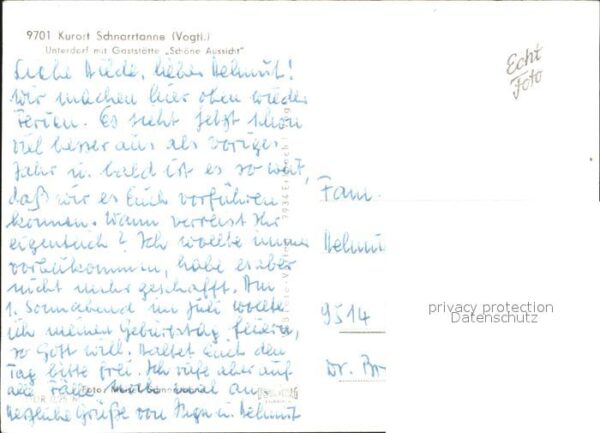 9701 Kurort Schnarrtanne (Vogtl.)
Unterdorf mit Gaststätte „Schöne Aussicht"
Echt
Foto
Liebe Hilde, lieber Helmut!
Wir machen hier oben wieder
Ferien. Es sieht jetzt schon
viel besser aus als voriges
Jahr u. bald ist es so weit,
daß wir es Euch vorführen
können. Wann verreist Ihr
eigentlich? Ich wollte immer
vorbeikommen, habe es aber
nicht mehr geschafft. Am
1. Sonnabend im Juli wollte
ich meinen Geburtstag feiern,
so Gott will. Haltet Euch den
Tag bitte frei. Ich rufe aber auf
alle Fälle noch mal an
Herzliche Grüße von u. Helmut
Fam.
Helmut
9514
Dr. Br
privacy protection
Datenschutz